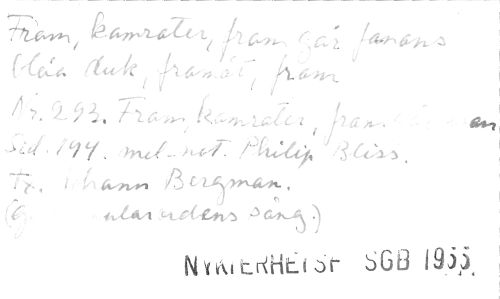 Fram, kamrater, fram går fanans
blåa duk, framåt, fram
Nr. 293. Fram, kamrater, fram
Sid. 194. mel. not. Philip Bliss.
Tx. Johann Bergman.
sång.)
NYKTERHETSF SGB 1955